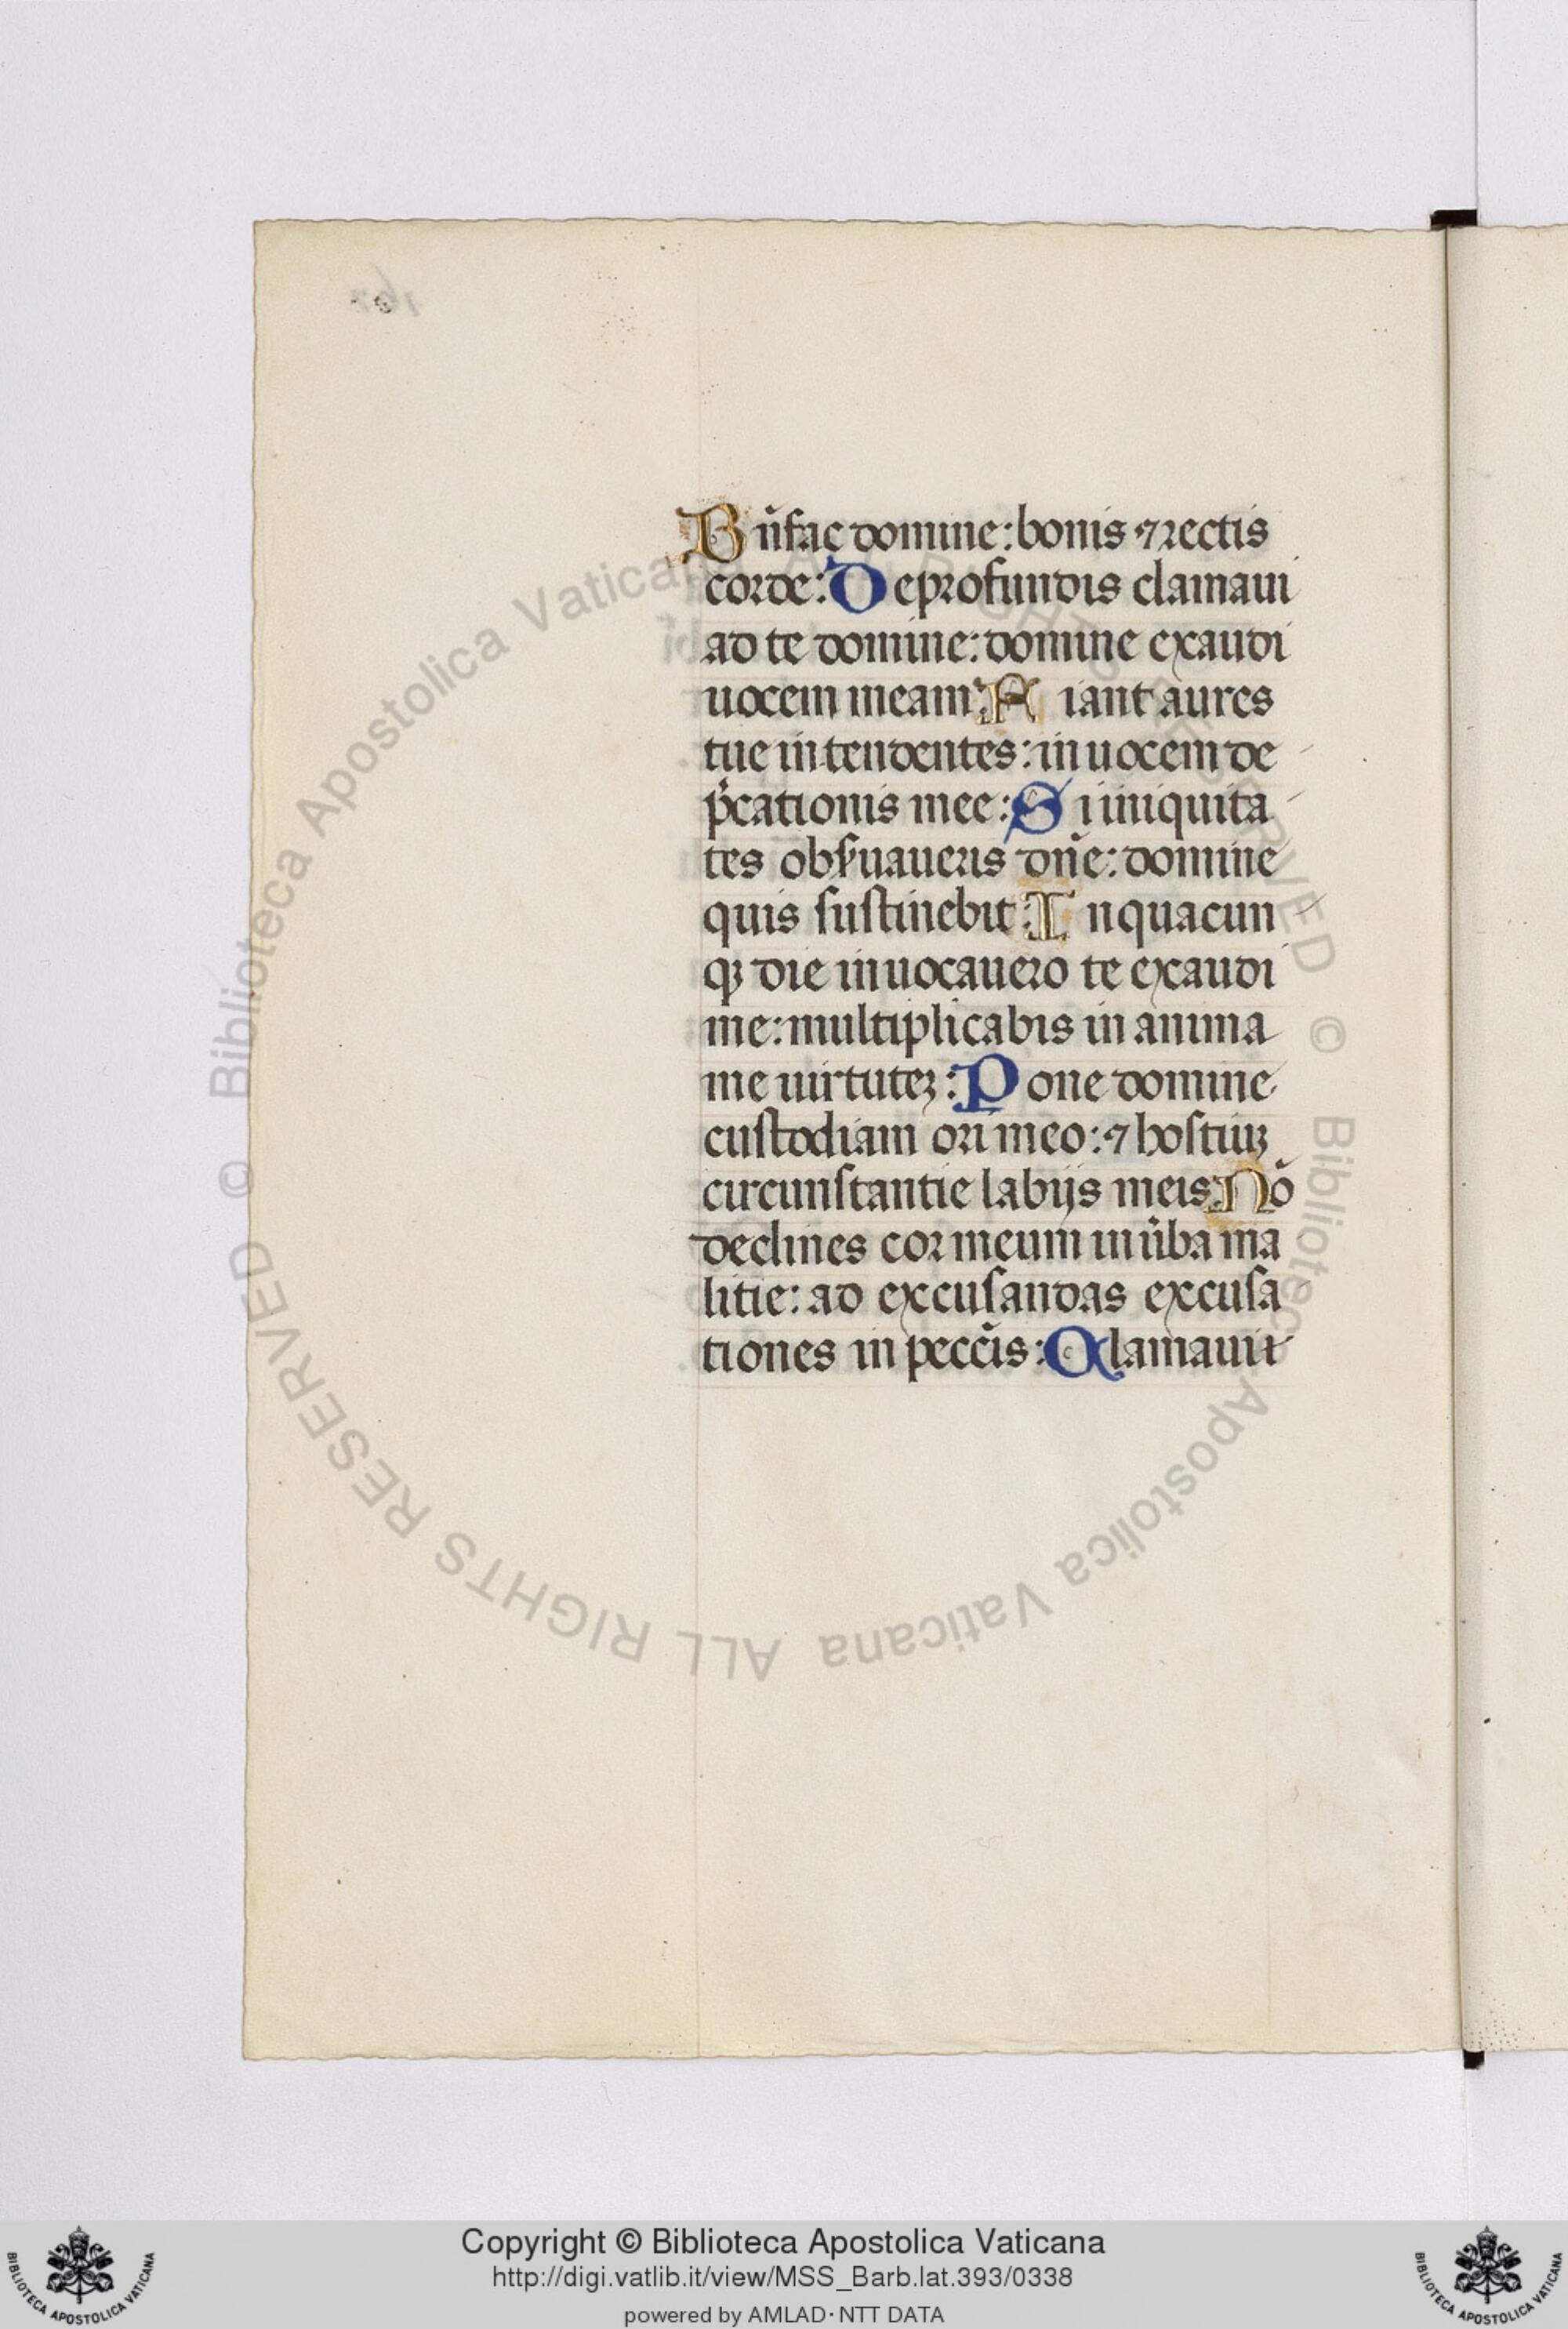 Bn̄fac domine: bonis ⁊ rectis
corde: De profundis clamaui
ad te domine: domine exaudi
uocem meam: Fiant aures
tue intendentes: in uocem de
p̄cationis mee: Si iniquita
tes obſ̄uaueris dn̄e: domine
quis ſuſtinebit: In quacun
qꝫ die inuocauero te exaudi
me: multiplicabis in anima
me uirtuteꝫ: Pone domine
cuſtodiam ori meo: ⁊ hoſtiuꝫ
circunſtantie labijs meis: Nō
declines cor meum in ūba ma
litie: ad excuſandas excuſa
tiones in pecc̄is: Clamaui t
© Biblioteca Apostolica Vaticana ALL RIGHTS RESERVED © Biblioteca Apostolica Vaticana ALL RIGHTS RESERVED
Copyright © Biblioteca Apostolica Vaticana
http://digi.vatlib.it/view/MSS_Barb.lat.393/0338
powered by AMLAD·NTT DATA
BIBLIOTECA APOSTOLICA VATICANA
BIBLIOTECA APOSTOLICA VATICANA